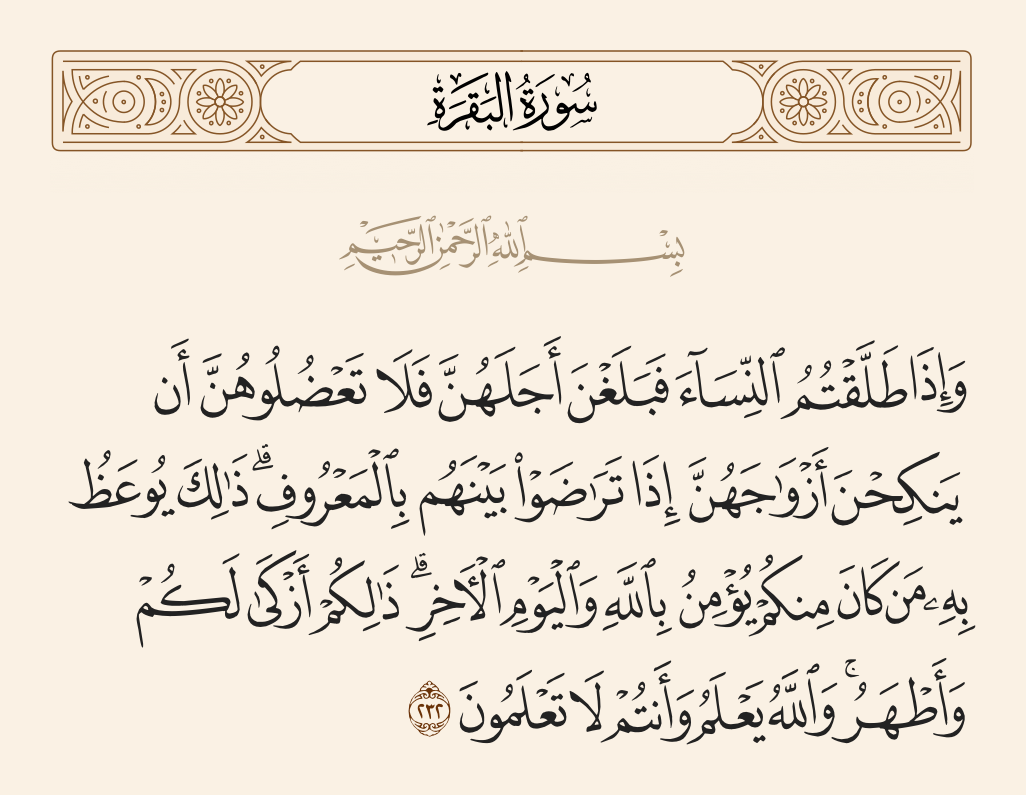 سُورَةُ البَقَرَةِ
بِسْمِ ٱللَّهِ ٱلرَّحْمَٰنِ ٱلرَّحِيمِ
وَإِذَا طَلَّقْتُمُ ٱلنِّسَآءَ فَبَلَغْنَ أَجَلَهُنَّ فَلَا تَعْضُلُوهُنَّ أَن
يَنكِحْنَ أَزْوَٰجَهُنَّ إِذَا تَرَٰضَوْا۟ بَيْنَهُم بِٱلْمَعْرُوفِ ۗ ذَٰلِكَ يُوعَظُ
بِهِۦ مَن كَانَ مِنكُمْ يُؤْمِنُ بِٱللَّهِ وَٱلْيَوْمِ ٱلْـَٔاخِرِ ۗ ذَٰلِكُمْ أَزْكَىٰ لَكُمْ
وَأَطْهَرُ ۚ وَٱللَّهُ يَعْلَمُ وَأَنتُمْ لَا تَعْلَمُونَ ٢٣٢